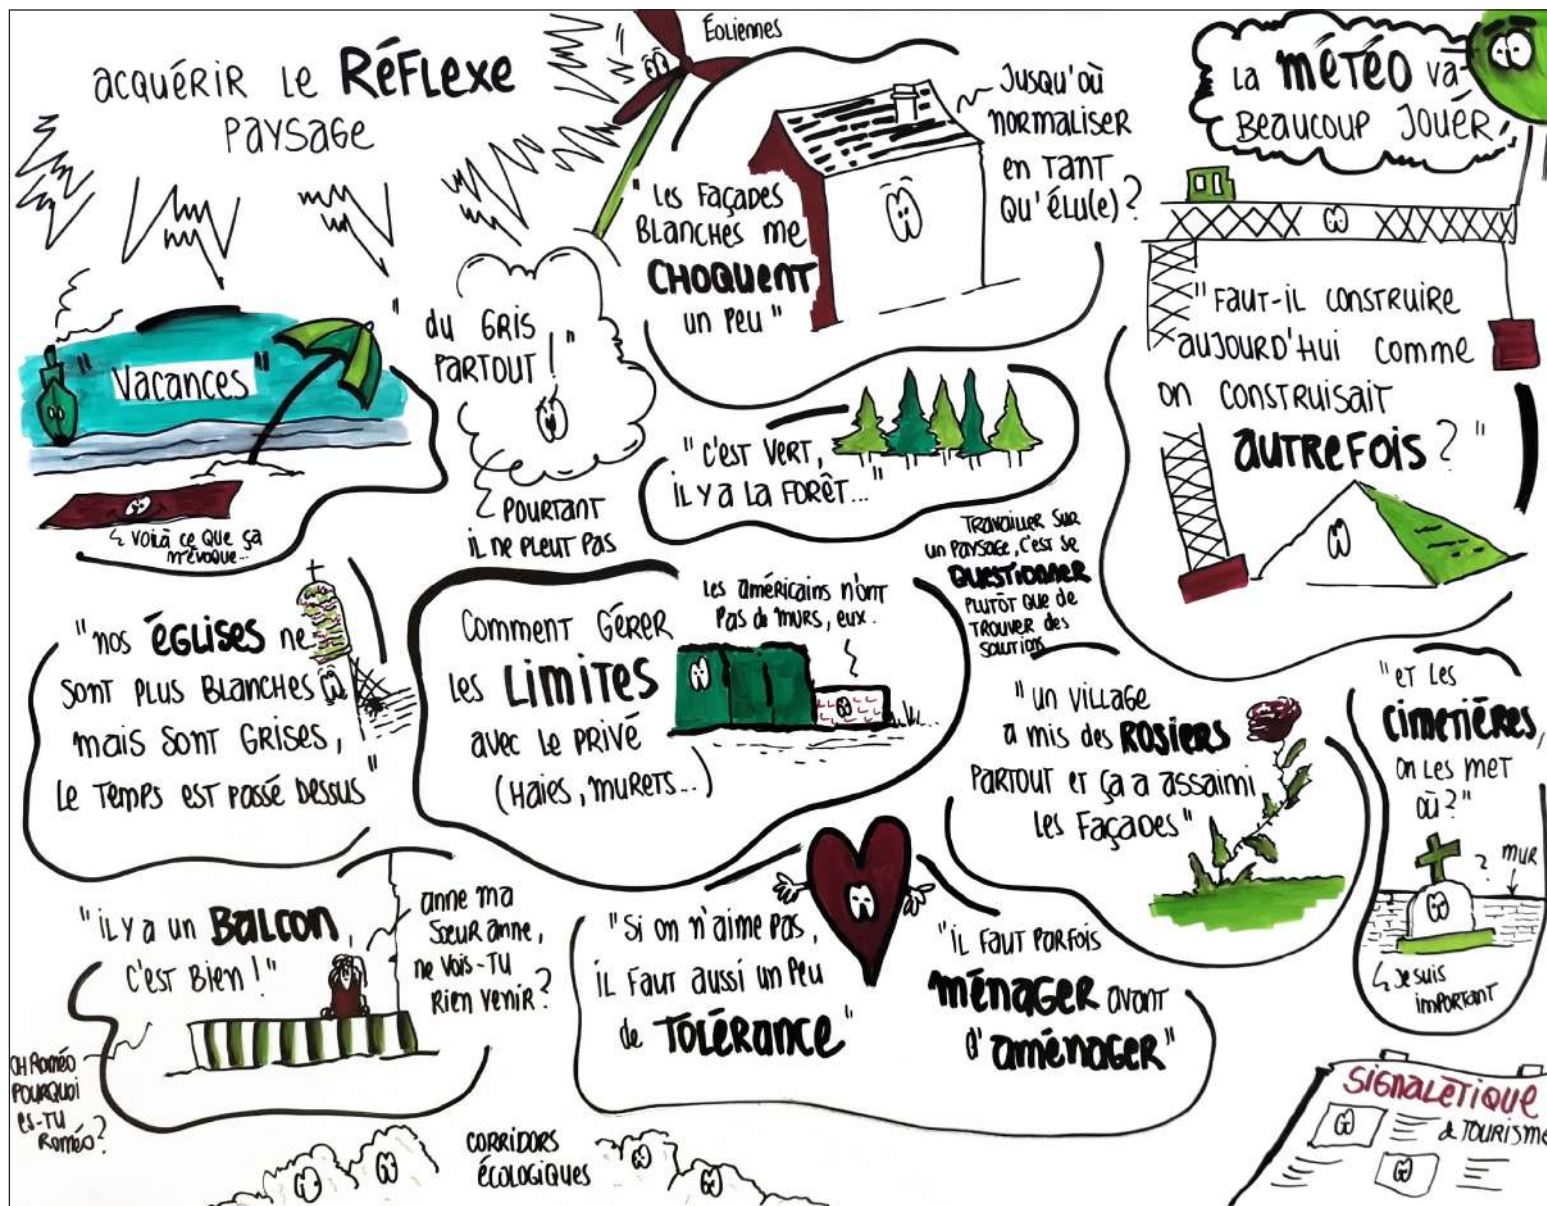 acquérir le RÉFLEXE
PAYSAGE
Éoliennes
"Les façades
blanches me
CHOQUENT
un peu"
Jusqu'où
normaliser
en tant
qu'élu(e)?
La MÉTÉO va
beaucoup jouer
"Vacances"
voilà ce que ça
m'évoque...
"du gris
partout!"
pourtant
il ne pleut pas
"c'est vert,
il y a la forêt..."
"Faut-il construire
aujourd'hui comme
on construisait
AUTREFOIS?"
Travailler sur
un paysage, c'est se
QUESTIONNER
plutôt que de
trouver des
solutions
"nos ÉGLISES ne
sont plus blanches
mais sont grises,
le temps est passé dessus"
Comment gérer
les LIMITES
avec le privé
(haies, murets...)
les américains n'ont
pas de murs, eux.
"un village
a mis des ROSIERS
partout et ça a assaimi
les façades"
"et les
CIMETIÉRES,
on les met
où?"
?
mur
Je suis
important
"il y a un BALCON,
c'est bien!"
anne ma
sœur anne,
ne vois-tu
rien venir?
OH Roméo
pourquoi
es-tu
Roméo?
"Si on n'aime pas,
il faut aussi un peu
de TOLÉRANCE"
"il faut parfois
MÉNAGER avant
d'AMÉNAGER"
CORRIDORS
ÉCOLOGIQUES
SIGNALÉTIQUE
& TOURISME